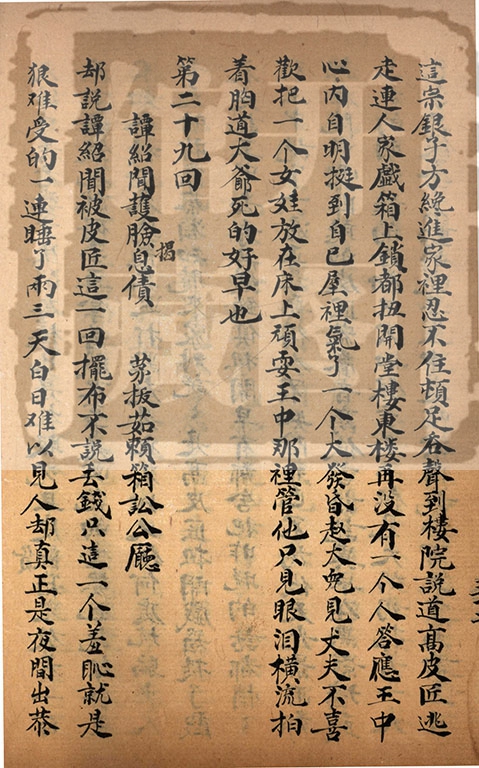 這宗銀子方纔進家裡忍不住頓足吞聲到樓院説道髙皮匠逃
走連人家戯箱上鎖都扭開堂樓東楼再没有一个人答應王中
心内自明挺到自己屋裡氣了一个大發昏赵大兒見丈夫不喜
歡把一个女娃放在床上頑耍王中那裡管他只見眼泪横流拍
着胸道大爺死的好早也
第二十九回
譚紹聞護臉揭息債　茅拔茹賴箱訟公廳
却説譚紹聞被皮匠這一回擺布不説丢錢只這一个羞恥就是
狠难受的一連睡了兩三天白日难以見人却真正是夜間出恭